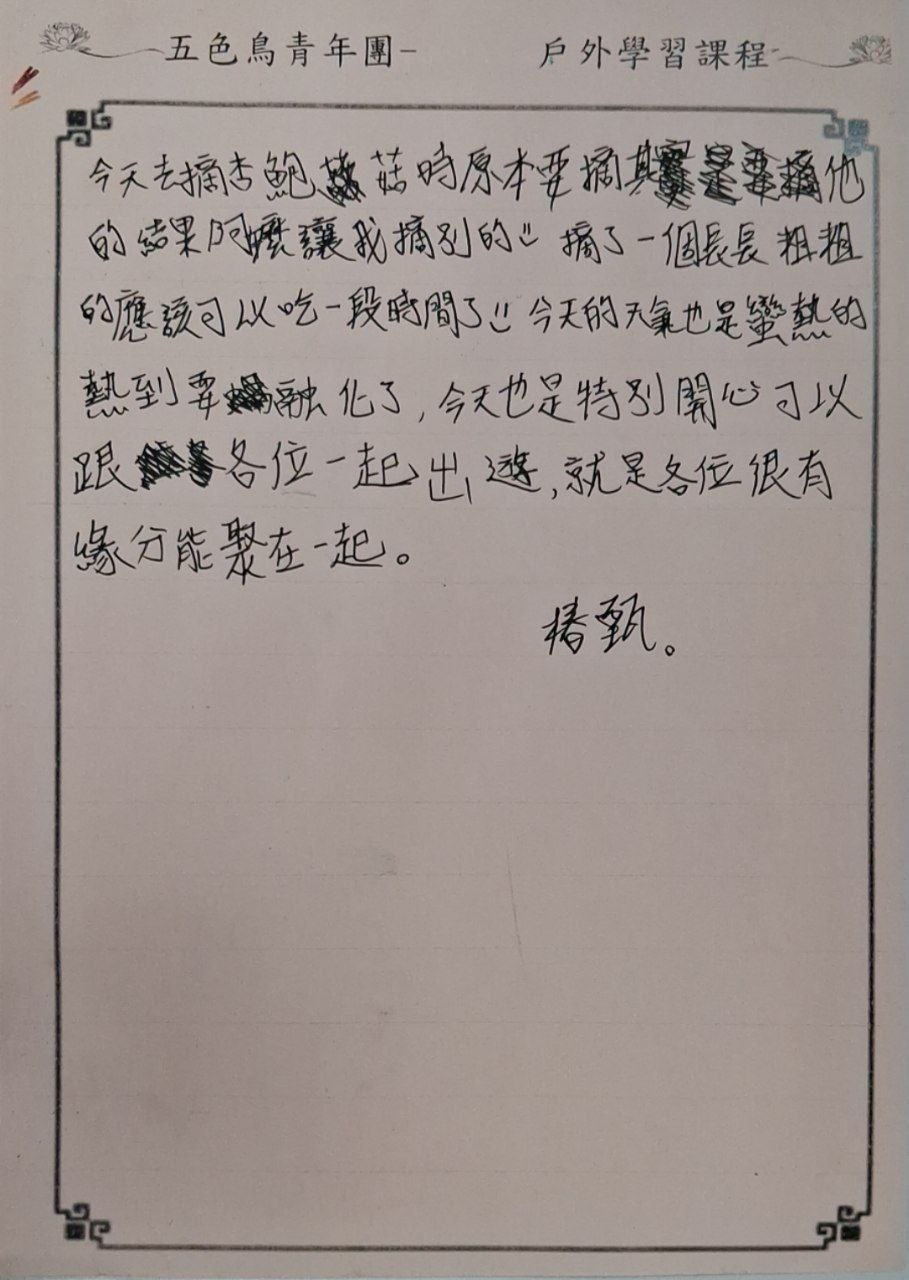 五色鳥青年團- 戶外學習課程-
今天去摘杏鮑菇時原本要摘其他
的結果阿嬤讓我摘別的 摘了一個長長粗粗
的應該可以吃一段時間了 今天的天氣也是蠻熱的
熱到要融化了,今天也是特別開心可以
跟各位一起出遊,就是各位很有
緣分能聚在一起。
椿甄。